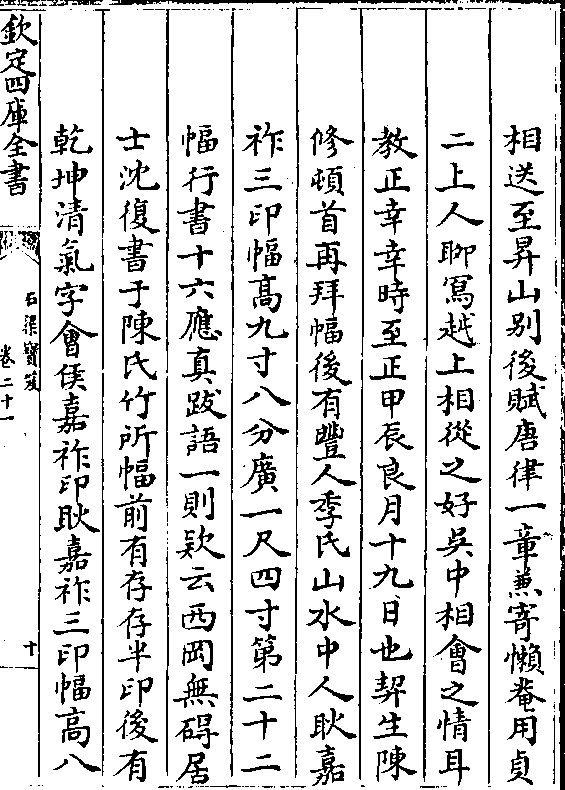 相送至昇山别後賦唐律一章兼寄懶菴用貞
二上人聊寫越上相從之好吳中相會之情耳
教正幸幸時至正甲辰良月十九日也契生陳
修頓首再拜幅後有豐人季氏山水中人耿嘉
祚三印幅高九寸八分廣一尺四寸第二十二
幅行書十六應真跋語一則欵云西岡無礙居
士沈復書于陳氏竹所幅前有存存半印後有
乾坤清氣字會侯嘉祚印耿嘉祚三印幅高八
欽定四庫全書
石渠寶笈
卷二十一
十